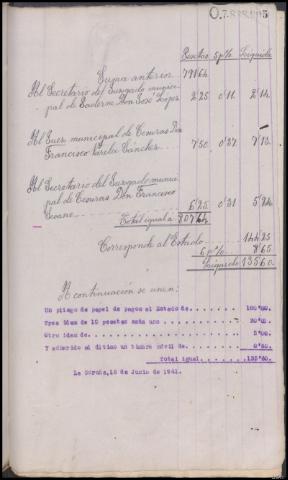 Pesetas 5 p% Líquido
Suma anterior 791'64
Al Secretario del Juzgado munici-
pal de Don José López 2'25 0'11 2'14
Al Juez municipal de Cesuras Don
Francisco Varela Sánchez 7'50 0'37 7'13
Al Secretario del Juzgado munici-
pal de Cesuras Don Francisco
Seoane 6'25 0'31 5'94
Total igual a 807'64
Corresponde al Estado 144'25
6 p% 8'65
Líquido 135'60
A continuación se unen:
Un pliego de papel de pagos al Estado de....... 100'00.
Tres idem de 10 pesetas cada uno............. 30'00.
Otro idem de............. 5'00.
Y adherido al último un timbre móvil de....... 0'60.
Total igual....... 135'60.
La Coruña, 18 de Junio de 1941.